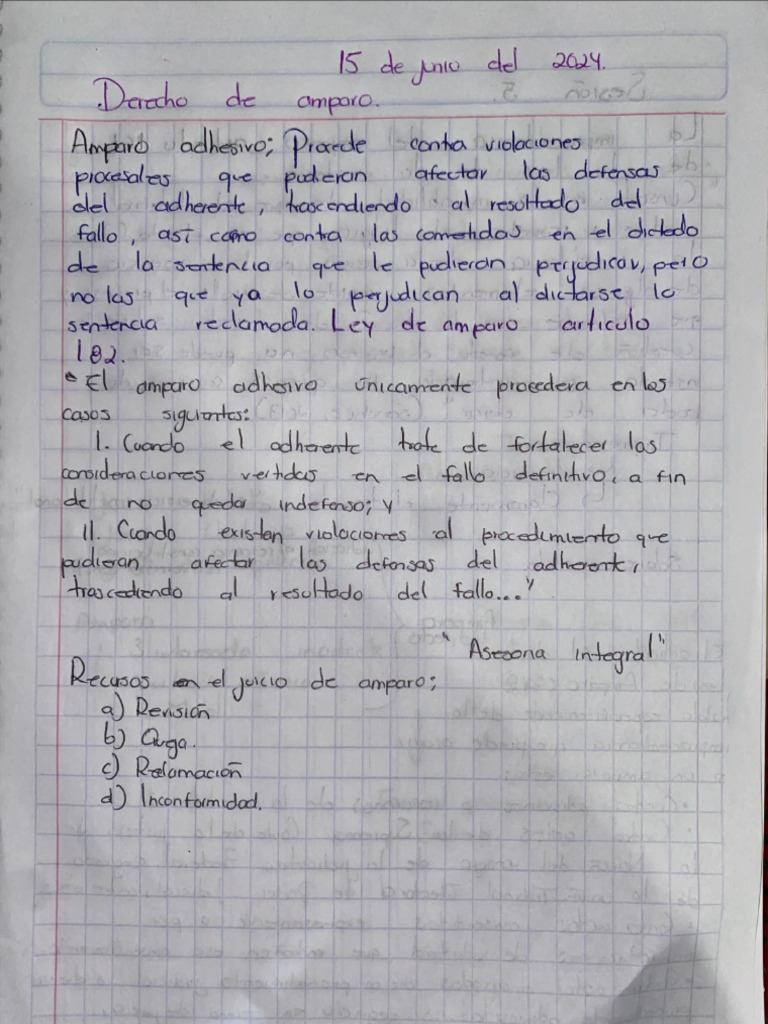 15 de junio del 2024.
Derecho de amparo.
Amparo adhesivo; Procede contra violaciones
procesales que pudieran afectar las defensas
del adherente, trascendiendo al resultado del
fallo, así como contra las cometidas en el dictado
de la sentencia que le pudieran perjudicar, pero
no las que ya lo perjudican al dictarse la
sentencia reclamada. Ley de amparo articulo
182.
"El amparo adhesivo únicamente procedera en los
casos siguientes:
I. Cuando el adherente trate de fortalecer las
consideraciones vertidas en el fallo definitivo, a fin
de no quedar indefenso; y
II. Cuando existen violaciones al procedimiento que
pudieran afectar las defensas del adherente,
trascediendo al resultado del fallo..."
"Asesoria integral"
Recusos en el juicio de amparo;
a) Revisión
b) Queja.
c) Reclamación
d) Inconformidad.